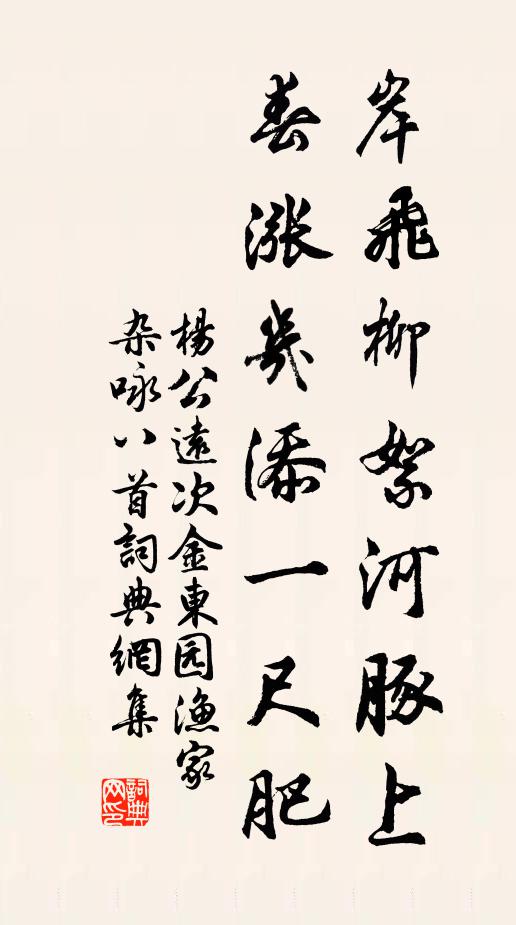 岸飛柳絮河豚上
春漲幾添一尺肥
楊公遠次金東园漁家
杂咏八首詞典網集
詞典网印